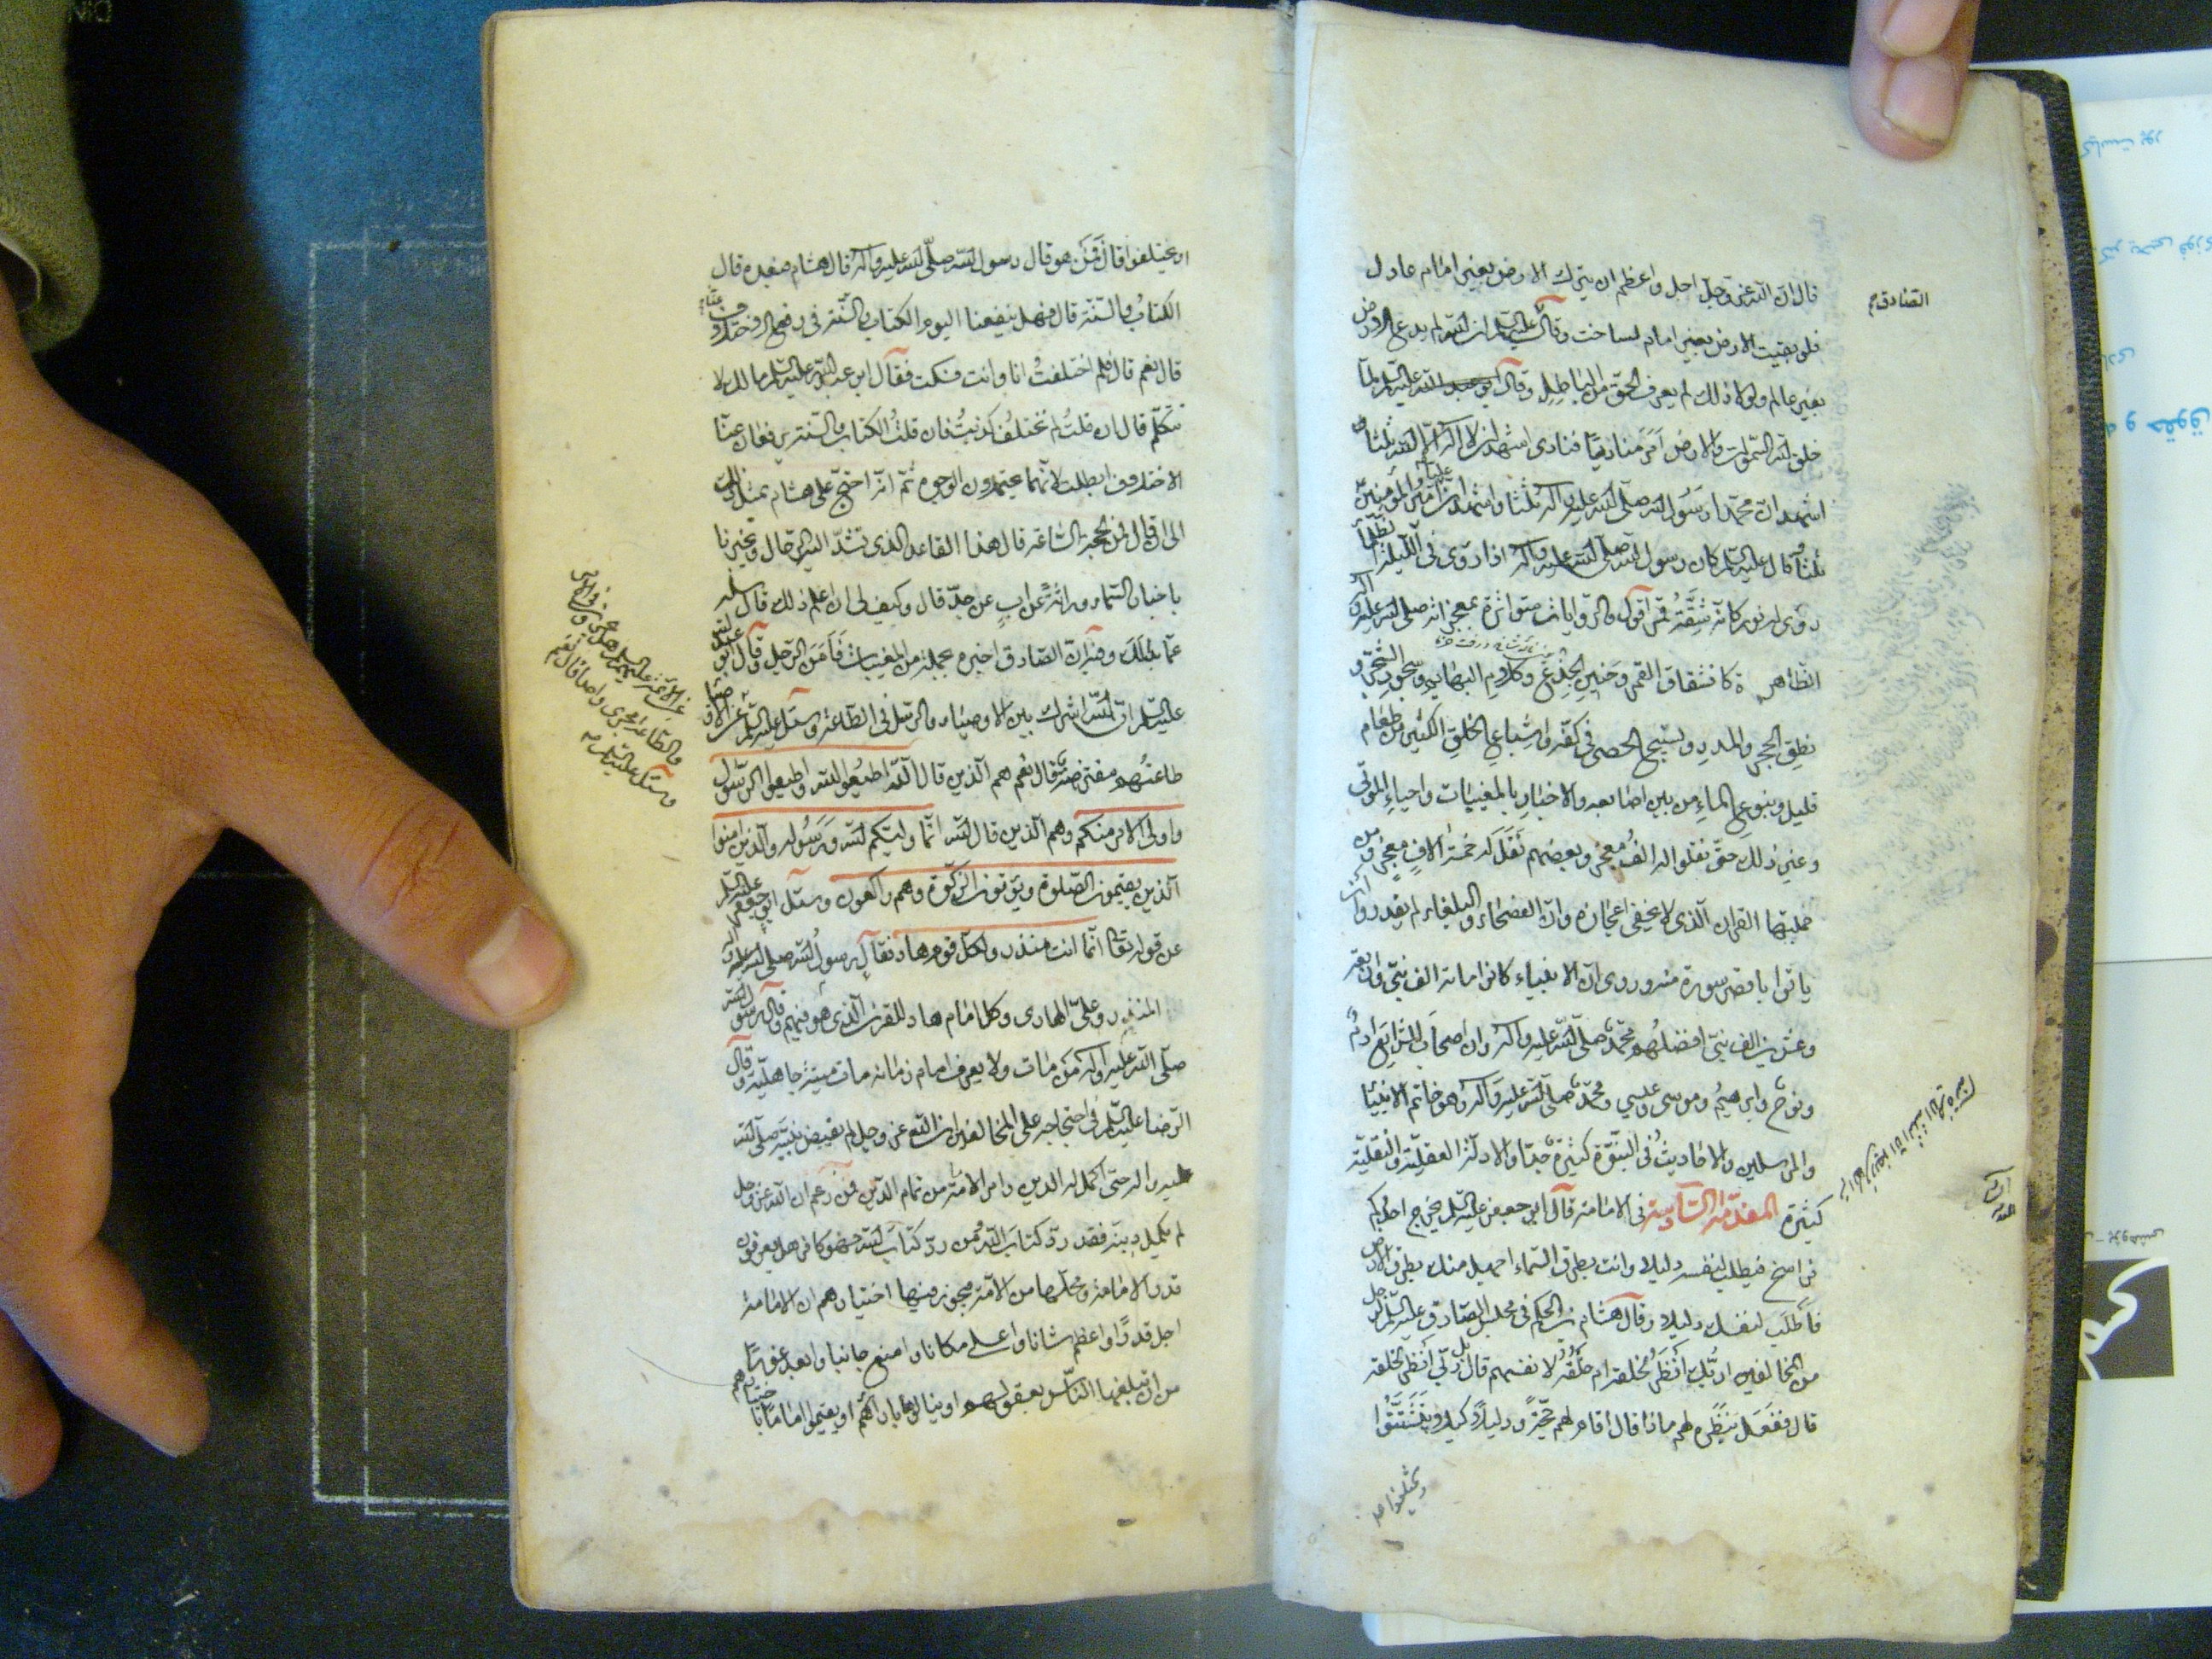 قال ان الله عز وجل اجل واعظم ان يترك الارض بغير امام عادل
الصادق ع
فلو بقيت الارض بغير امام لساخت وقال عليه السلم ان الله لم يدع الارض
بغير عالم ولولا ذلك لم يعرف الحق من الباطل وقال ابو عبد الله عليه السلم لما
خلق الله السموات والارض امر مناديا فنادى اشهد ان لا اله الا الله ثلثا
اشهد ان محمدا رسول الله صلى الله عليه واله ثلثا واشهد ان عليا امير المؤمنين
ثلثا وقال عليه السلم كان رسول الله صلى الله عليه واله اذا روى فى الليلة
رؤى له نور كانه شقة قمر اقول والروايات متواترة بمعجزاته صلى الله عليه واله
الظاهرة كانشقاق القمر وحنين الجذع وكلام البهايم وسجود الشجر و
نطق الحجر والمدر وتسبيح الحصى فى كفه واشباع الخلق الكثير من طعام
قليل وينبوع الماء من بين اصابعه والاخبار بالمغيبات واحياء الموتى
وغير ذلك حتى نقلوا له الف معجز وبعضهم نقل له خمسة الاف معجز ومن
جملتها القران الذى لا يخفى اعجازه وان الفصحاء والبلغاء لم يقدروا ان
ياتوا باقصر سورة منه وروى ان الانبياء كانوا مائة الف نبى واربعة
وعشرين الف نبى افضلهم محمد صلى الله عليه واله وان اصحاب الشرايع ادم
ونوح وابرهيم وموسى وعيسى ومحمد صلى الله عليه واله وهو خاتم الانبيا
والمرسلين والاحاديث فى النبوة كثيرة جدا والادلة العقلية والنقلية
كثيرة المقدمة السادسة فى الامامة قال ابو جعفر عليه السلم يخرج احدكم
فراسخ فيطلب لنفسه دليلا وانت بطرق السماء اجهل منك بطرق الارض
فاطلب لنفسك دليلا وقال هشام بن الحكم فى مجلس الصادق عليه السلم لرجل
من المخالفين اربك انظر لخلقه ام خلقه لانفسهم قال بل ربى انظر لخلقه
قال ففعل بنظره لهم ماذا قال اقام لهم حجة ودليلا كيلا يتشتتوا
او يختلفوا قال فمن هو قال رسول الله صلى الله عليه واله قال هشام فبعده قال
الكتاب والسنة قال فهل ينفعنا اليوم الكتاب والسنة فى رفع الاختلاف عنا
قال نعم قال فلم اختلفت انا وانت فسكت فقال ابو عبد الله عليه السلم مالك لا
تتكلم قال ان قلت لم نختلف كذبت فان قلت الكتاب والسنة يرفعان عنا
الاختلاف ابطلت لانهما يحتملان الوجوه ثم انه احتج على هشام بمثل ذلك
الى ان قال فمن الحجة الساعة قال هذا القاعد الذى تشد اليه الرحال ويخبرنا
باخبار السماء وراثة عن اب عن جد قال وكيف لى ان اعلم ذلك قال سله
عما بدالك وفيه ان الصادق اخبره بجملة من المغيبات فامن الرجل وقال ابو عبد الله
عليه السلم ان الله اشرك بين الاوصياء والرسل فى الطاعة وسئل عليه السلم عن الاوصياء
طاعتهم مفترضة قال نعم هم الذين قال الله اطيعوا الله واطيعوا الرسول
واولى الامر منكم وهم الذين قال الله انما وليكم الله ورسوله والذين امنوا
الذين يقيمون الصلوة ويؤتون الزكوة وهم راكعون وسئل ابو جعفر عليه السلم
عن قوله تعالى انما انت منذر ولكل قوم هاد فقال رسول الله صلى الله عليه واله
المنذر وعلى الهادى وكل امام هاد للقرن الذى هو فيهم وقال رسول الله
صلى الله عليه واله من مات ولا يعرف امام زمانه مات ميتة جاهلية وقال
الرضا عليه السلم فى احتجاجه على المخالفين ان الله عز وجل لم يقبض نبيه صلى الله
عليه واله حتى اكمل له الدين وامر الامامة من تمام الدين فمن زعم ان الله عز وجل
لم يكمل دينه فقد رد كتاب الله ومن رد كتاب الله فهو كافر هل يعرفون
قدر الامامة ومحلها من الامة فيجوز فيها اختيارهم ان الامامة
اجل قدرا واعظم شانا واعلى مكانا وامنع جانبا وابعد غورا
من ان يبلغها الناس بعقولهم او ينالوها بارائهم او يقيموا اماما باختيارهم